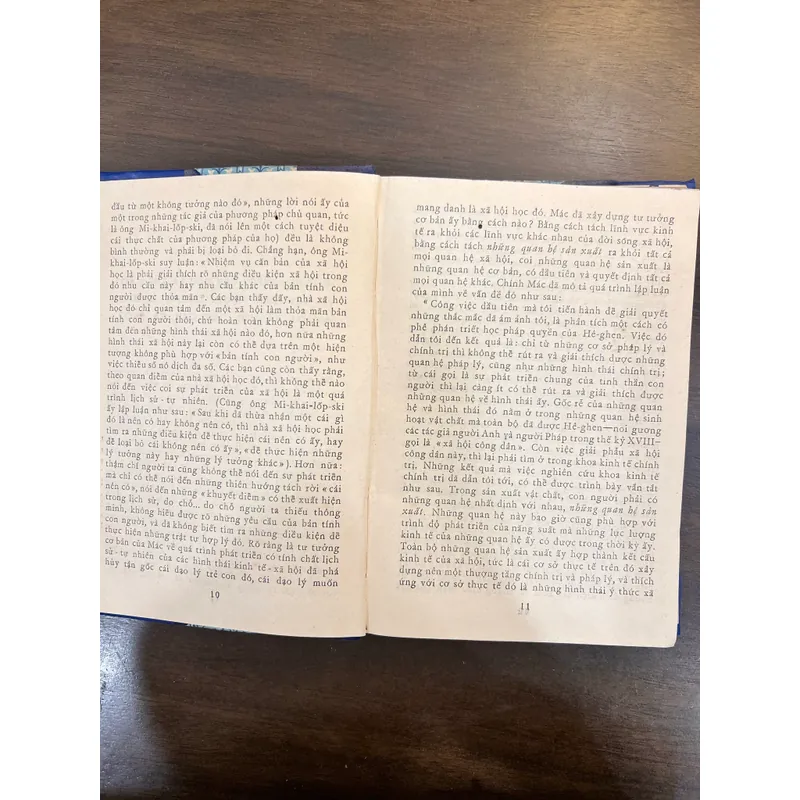 đầu từ một không tưởng nào đó», những lời nói ấy của
một trong những tác giả của phương pháp chủ quan, tức
là ông Mi-khai-lốp-ski, đã nói lên một cách tuyệt diệu
cái thực chất của phương pháp của họ) đều là không
bình thường và phải bị loại bỏ đi. Chẳng hạn, ông Mi-
khai-lốp-ski suy luận: «Nhiệm vụ căn bản của xã hội
học là phải giải thích rõ những điều kiện xã hội trong
đó nhu cầu này hay nhu cầu khác của bản tính con
người được thỏa mãn». Các bạn thấy đấy, nhà xã hội
học đó chỉ quan tâm đến một xã hội làm thỏa mãn bản
tính con người thôi, chứ hoàn toàn không phải quan
tâm đến những hình thái xã hội nào đó, hơn nữa những
hình thái xã hội này lại còn có thể dựa trên một hiện
tượng không phù hợp với «bản tính con người», như
việc thiểu số nô dịch đa số. Các bạn cũng thấy rằng,
theo quan điểm của nhà xã hội học đó, thì không thể nào
nói đến việc coi sự phát triển của xã hội là một quá
trình lịch sử - tự nhiên. (Cũng ông Mi-khai-lốp-ski
ấy lập luận như sau: «Sau khi đã thừa nhận một cái gì
đó là nên có hay không nên có, thì nhà xã hội học phải
tìm ra những điều kiện để thực hiện cái nên có ấy, hay
để loại bỏ cái không nên có ấy», «để thực hiện những
lý tưởng này hay những lý tưởng khác»). Hơn nữa:
thậm chí người ta cũng không thể nói đến sự phát triển
mà chỉ có thể nói đến những thiên hướng tách rời «cái
nên có», nói đến những «khuyết điểm» có thể xuất hiện
trong lịch sử, do chỗ... do chỗ người ta thiếu thông
minh, không hiểu được rõ những yêu cầu của bản tính
con người, và đã không biết tìm ra những điều kiện để
thực hiện những trật tự hợp lý đó. Rõ ràng là tư tưởng
cơ bản của Mác về quá trình phát triển có tính chất lịch
sử - tự nhiên của các hình thái kinh tế - xã hội đã phá
hủy tận gốc cái đạo lý trẻ con đó, cái đạo lý muốn
10
mang danh là xã hội học đó. Mác đã xây dựng tư tưởng
cơ bản ấy bằng cách nào? Bằng cách tách lĩnh vực kinh
tế ra khỏi các lĩnh vực khác nhau của đời sống xã hội,
bằng cách tách những quan hệ sản xuất ra khỏi tất cả
mọi quan hệ xã hội, coi những quan hệ sản xuất là
những quan hệ cơ bản, có đầu tiên và quyết định tất cả
mọi quan hệ khác. Chính Mác đã mô tả quá trình lập luận
của mình về vấn đề đó như sau:
"Công việc đầu tiên mà tôi tiến hành để giải quyết
những thắc mắc đã ám ảnh tôi, là phân tích một cách có
phê phán triết học pháp quyền của Hê-ghen. Việc đó
dẫn tôi đến kết quả là: chỉ từ những cơ sở pháp lý và
chính trị thì không thể rút ra và giải thích được những
quan hệ pháp lý, cũng như những hình thái chính trị;
từ cái gọi là sự phát triển chung của tinh thần con
người thì lại càng ít có thể rút ra và giải thích được
những quan hệ về hình thái ấy. Gốc rễ của những quan
hệ và hình thái đó nằm ở trong những quan hệ sinh
hoạt vật chất mà toàn bộ đã được Hê-ghen—noi gương
các tác giả người Anh và người Pháp trong thế kỷ XVIII—
gọi là «xã hội công dân». Còn việc giải phẫu xã hội
công dân này, thì lại phải tìm ở trong khoa kinh tế chính
trị. Những kết quả mà việc nghiên cứu khoa kinh tế
chính trị đã dẫn tôi tới, có thể được trình bày vắn tắt
như sau. Trong sản xuất vật chất, con người phải có
những quan hệ nhất định với nhau, những quan hệ sản
xuất. Những quan hệ này bao giờ cũng phù hợp với
trình độ phát triển của năng suất mà những lực lượng
kinh tế của những quan hệ ấy có được trong thời kỳ ấy.
Toàn bộ những quan hệ sản xuất ấy hợp thành kết cấu
kinh tế của xã hội, tức là cái cơ sở thực tế trên đó xây
dựng nên một thượng tầng chính trị và pháp lý, và thích
ứng với cơ sở thực tế đó là những hình thái ý thức xã
11